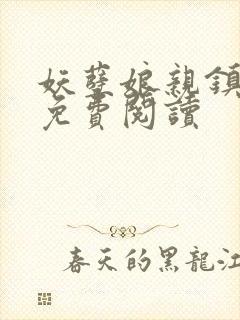 妖孽娘親鎮
免費閱讀
春天的黑龍江